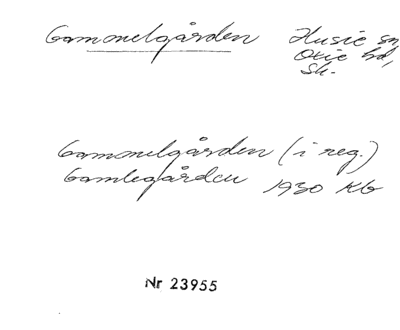 Gammelgården Husie sn,
Oxie hd,
Sk.
Gammelgården (i reg.)
Gamlegården 1930 KG
Nr 23955